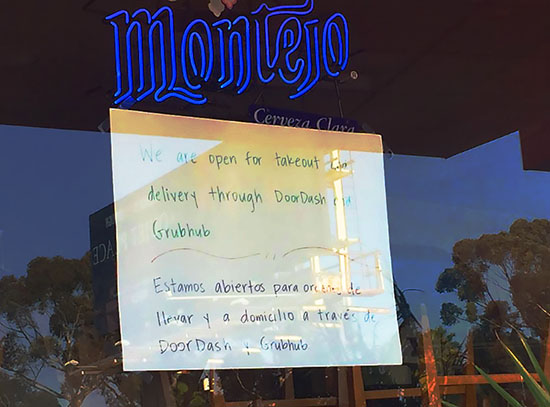 Montejo
Cerveza Clara
We are open for takeout
delivery through DoorDash and
Grubhub
Estamos abiertos para ordenes de
llevar y a domicilio a través de
DoorDash y Grubhub
PLACE